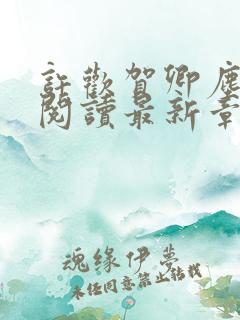 許歡賀卿塵
閱讀最新章
魂缘伊梦
未经同意禁止转载